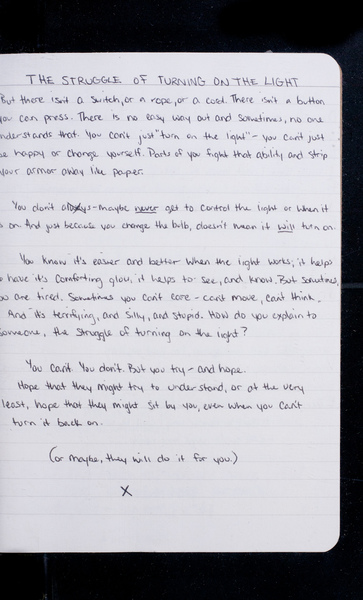 THE STRUGGLE OF TURNING ON THE LIGHT
But there isn't a switch, or a rope, or a cord. There isn't a button
you can press. There is no easy way out and sometimes, no one
understands that. You can't just "turn on the light" - you can't just
be happy or change yourself. Parts of you fight that ability and strip
your armor away like paper.
You don't always - maybe never get to control the light or when it
is on. And just because you change the bulb, doesn't mean it will turn on.
You know it's easier and better when the light works; it helps
to have it's comforting glow, it helps to see, and know. But sometimes,
you are tired. Sometimes you can't care - can't move, can't think.
And it's terrifying, and silly, and stupid. How do you explain to
someone, the struggle of turning on the light?
You can't. You don't. But you try - and hope.
Hope that they might try to understand, or at the very
least, hope that they might sit by you, even when you can't
turn it back on.
(or maybe, they will do it for you.)
X